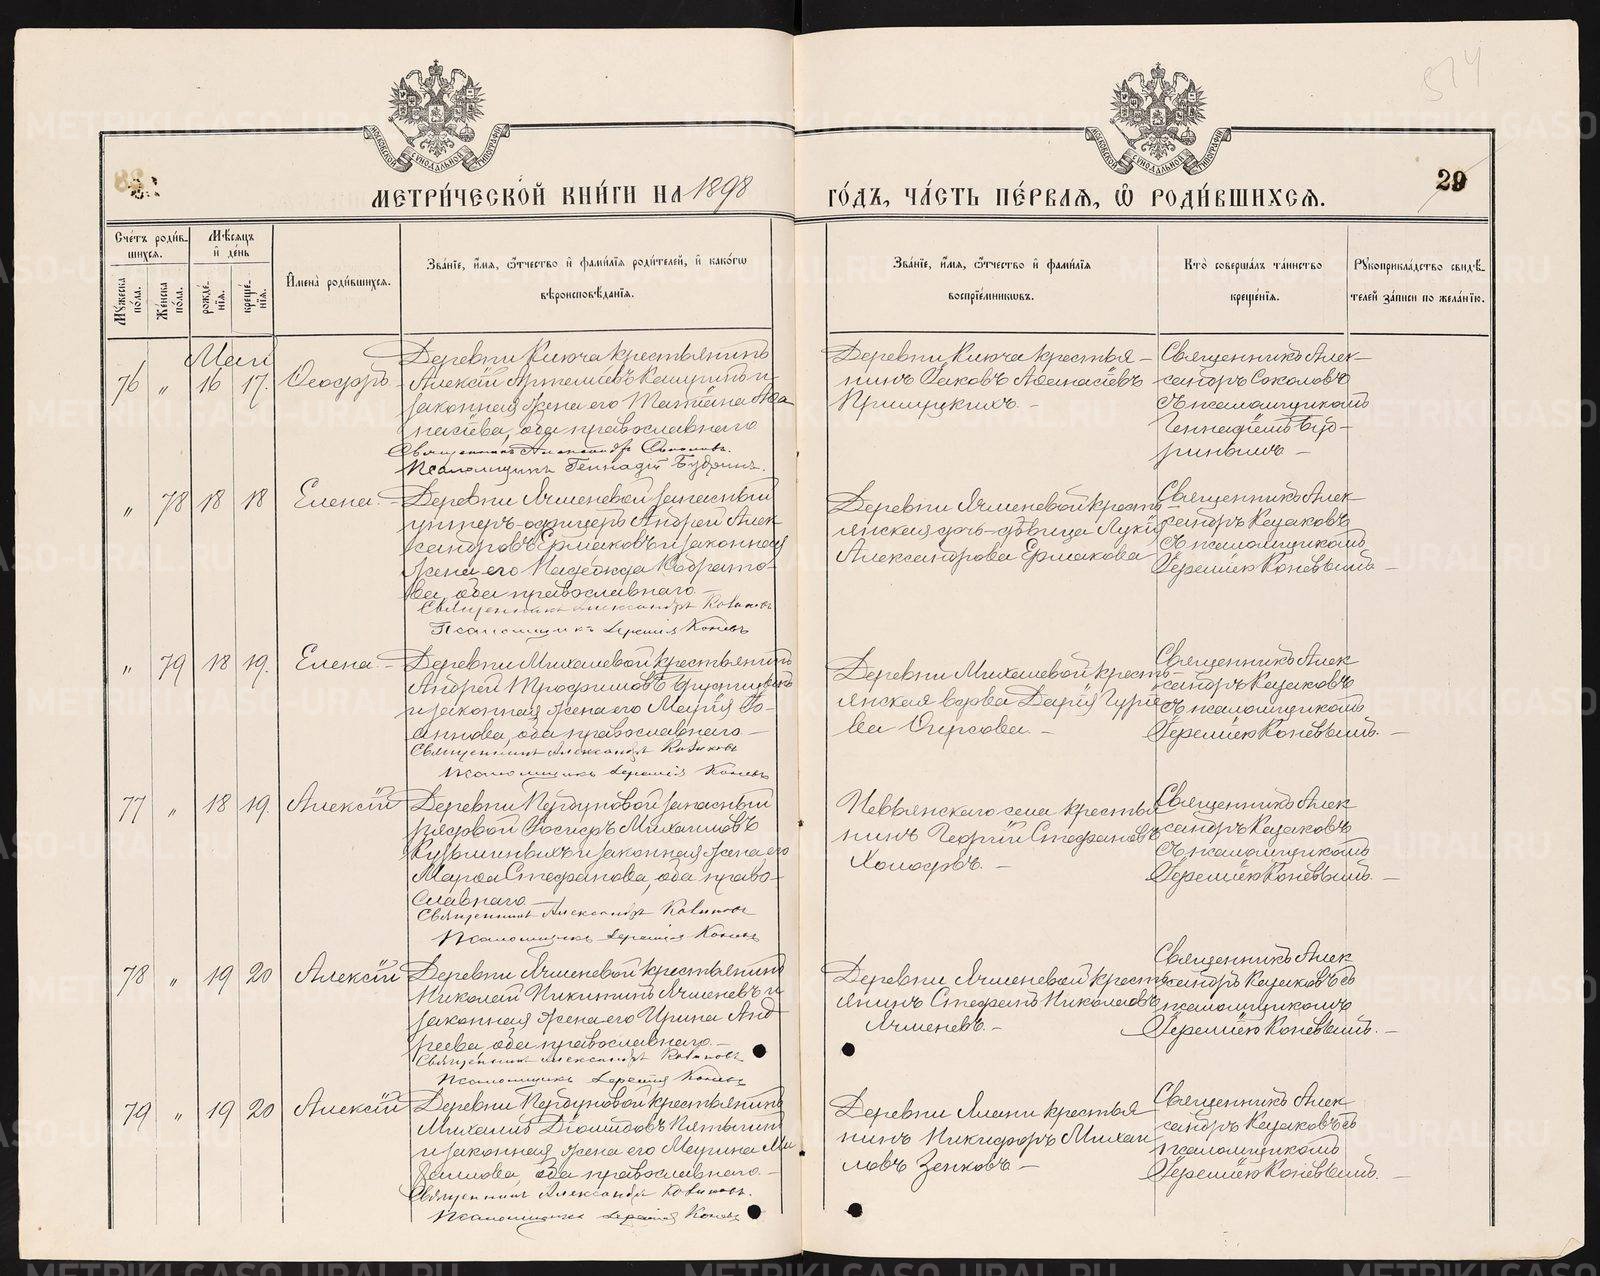 МЕТРИ́ЧЕСКОЙ КНИ́ГИ НА 1898
ГО́ДЪ, ЧА́СТЬ ПЕ́РВАѦ, Ѡ҆ РОДИ́ВШИХСѦ.
29
574
МОСКОВСКОЙ СѴНОДАЛЬНОЙ ТИПОГРАФІИ
МОСКОВСКОЙ СѴНОДАЛЬНОЙ ТИПОГРАФІИ
Сче́тъ роди́в-
шихсѧ.
Мꙋ́жеска по́ла.
Же́нска по́ла.
Мѣ́сѧцъ
и҆ де́нь
рожде́-
нїѧ.
креще́-
нїѧ.
И҆мена̀ роди́вшихсѧ.
Зва́нїе, и҆́мѧ, ѻ҆́тчество и҆ фами́лїѧ роди́телей, и҆ како́гѡ
вѣроисповѣ́данїѧ.
Зва́нїе, и҆́мѧ, ѻ҆́тчество и҆ фами́лїѧ
воспрїе́мникѡвъ.
Кто̀ соверша́лъ та́инство
креще́нїѧ.
Рꙋкоприкла́дство свидѣ́-
телей за́писи по жела́нїю.
Май
76 " 16 17. Ѳеодоръ
Деревни Ключа крестьянинъ
Алексѣй Артемьевъ Кашринъ и
законная жена его Татіана Аѳа
насіева, оба православнаго
Священникъ Александръ Соколовъ.
Псаломщикъ Геннадій Будринъ.
Деревни Ключа крестья-
нинъ Іаковъ Аѳанасіевъ
Прилуцкихъ. -
Священникъ Алек-
сандръ Соколовъ
съ псаломщикомъ
Геннадіемъ Буд-
ринымъ -
" 78 18 18 Елена -
Деревни Ячменевой запасный
унтеръ-офицеръ Андрей Алек
сандровъ Ермаковъ и законная
жена его Надежда Кодрато-
ва, оба православнаго. -
Священникъ Александръ Казаковъ
Псаломщикъ Іеремія Коневъ
Деревни Ячменевой кресть-
янская дочь-дѣвица Лукія
Александрова Ермакова
Священникъ Алек
сандръ Казаковъ
съ псаломщикомъ
Іереміею Коневымъ -
" 79 18 19. Елена -
Деревни Михалевой крестьянинъ
Андрей Трофимовъ
и законная жена его Марія Іо-
аннова, оба православнаго -
Священникъ Александръ Казаковъ
Псаломщикъ Іеремія Коневъ
Деревни Михалевой кресть-
янская вдова Дарія Гурье
ва Фирсова. -
Священникъ Алек
сандръ Казаковъ
съ псаломщикомъ
Іереміею Коневымъ. -
77 " 18 19. Алексій
Деревни Пербуновой запасный
рядовой Іосифъ Михаиловъ
Кузьминыхъ и законная жена его
Марѳа Стефанова, оба право-
славнаго -
Священникъ Александръ Казаковъ
Псаломщикъ Іеремія Коневъ
Невьянскаго села крестья
нинъ Георгій Стефановъ
Холодовъ. -
Священникъ Алек
сандръ Казаковъ
съ псаломщикомъ
Іереміею Коневымъ. -
78 " 19 20 Алексій
Деревни Ячменевой крестьянинъ
Николай Никитинъ Ячменевъ и
законная жена его Ирина Анд
реева оба православнаго. -
Священникъ Александръ Казаковъ
Псаломщикъ Іеремія Коневъ
Деревни Ячменевой кресть
янинъ Стефанъ Николаевъ
Ячменевъ. -
Священникъ Алек
сандръ Казаковъ съ
псаломщикомъ
Іереміею Коневымъ. -
79 " 19 20 Алексій
Деревни Пербуновой крестьянинъ
Михаилъ Діомидовъ Пятыгинъ
и законная жена его Марина Ми
хаилова, оба православнаго. -
Священникъ Александръ Казаковъ.
Псаломщикъ Іеремія Коневъ
Деревни Ялани крестья
нинъ Никифоръ Михаи
ловъ Зенковъ -
Священникъ Алек
сандръ Казаковъ съ
псаломщикомъ
Іереміею Коневымъ. -
METRIKI.GASO-URAL.RU